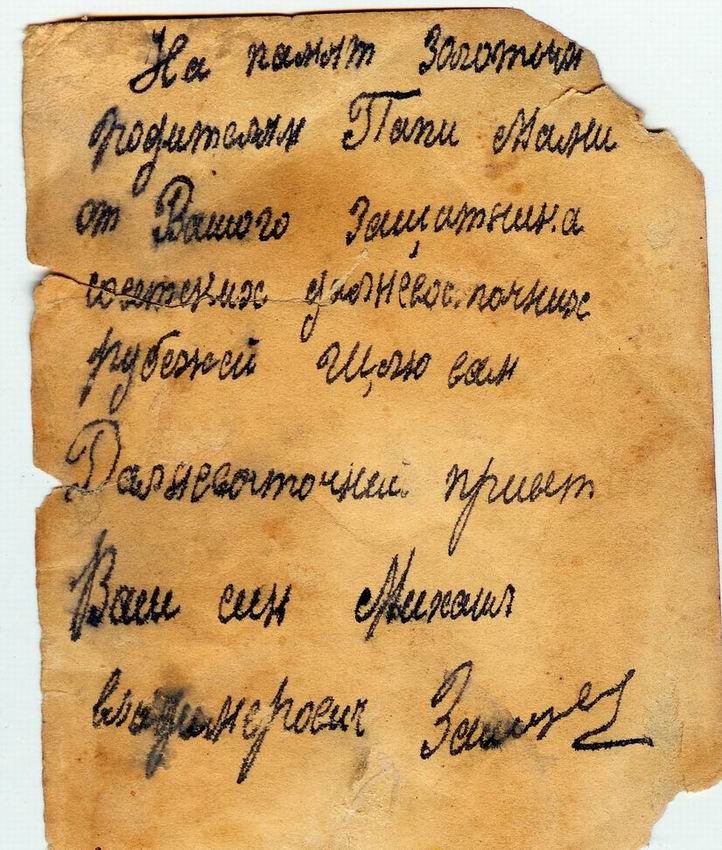 На памят Золотим
родителям Папи Мами
от Вашого Защитника
советских дальневосточних
рубежей Шлю вам
Дальневосточний привет
Ваш син Михаил
владимерович